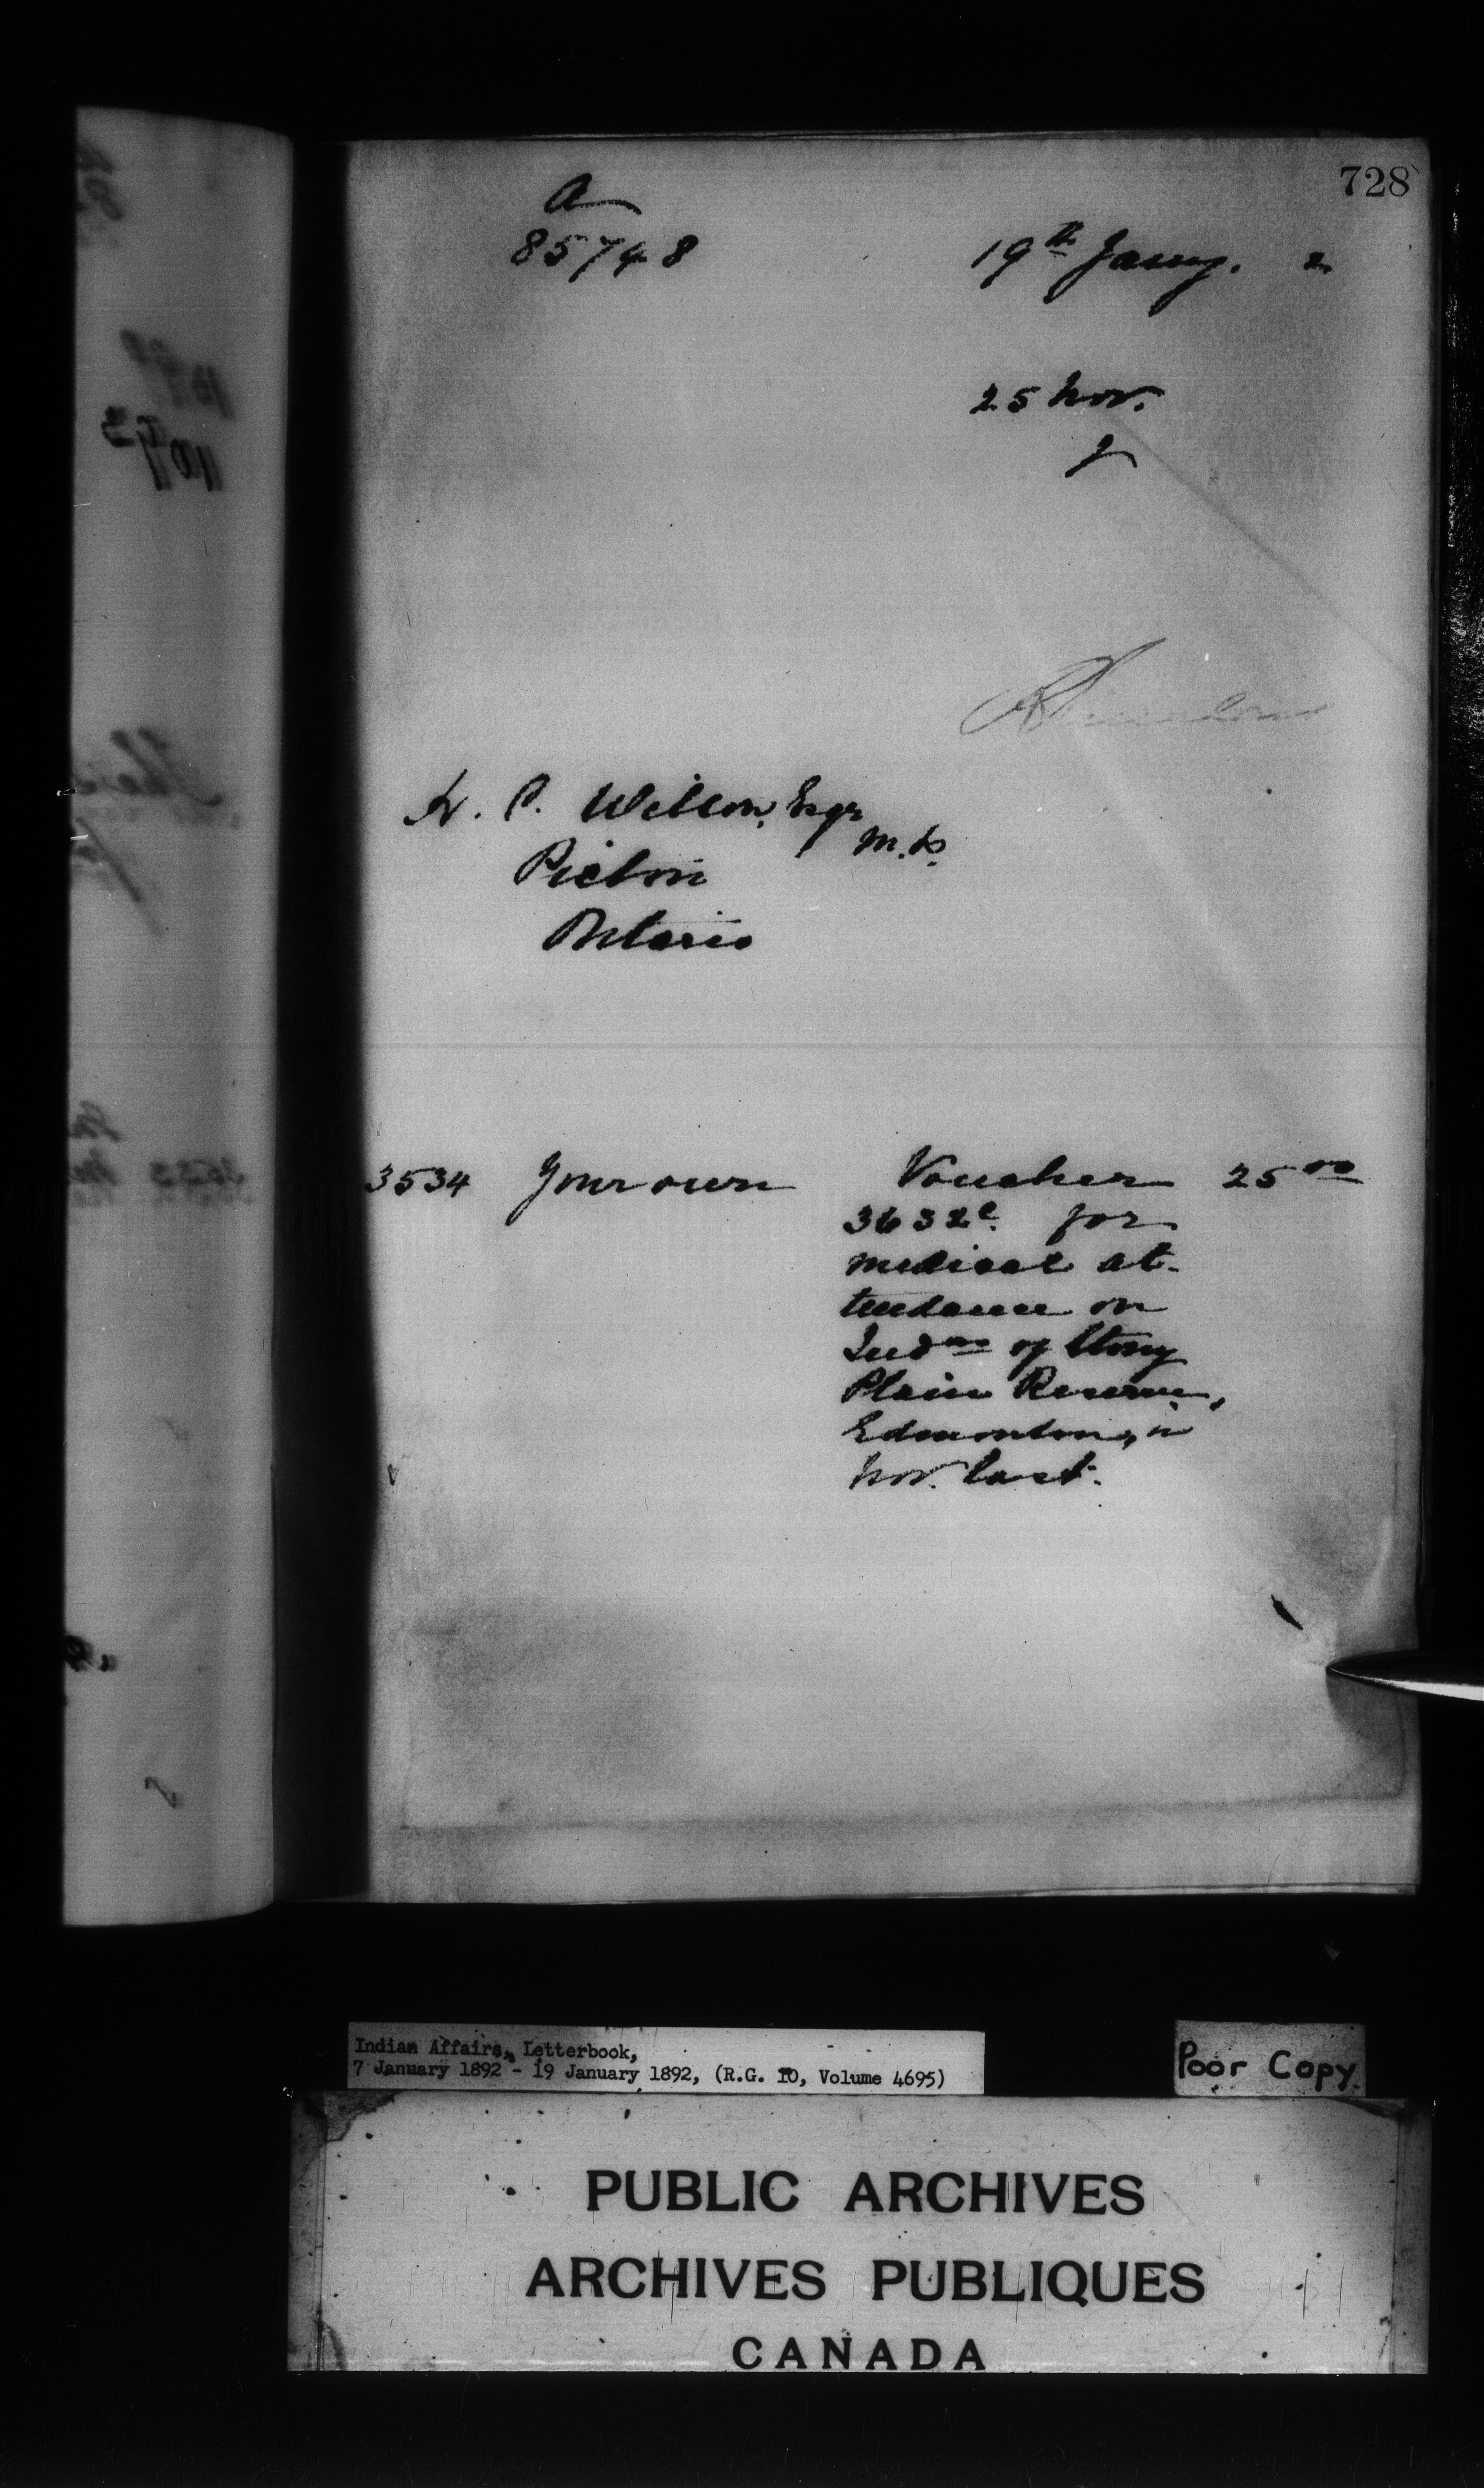 728
a
85748
19th Jany. 2
25 Nov.
H. C. Wilson, Esqr
M.D.
Picton
Ontario
3534 Your own Voucher 25 00
3632c. for
medical at-
tendance on
Indns of Stony
Plain Reserve,
Edmonton, in
Nov. last.
Indian Affairs, Letterbook,
7 January 1892 - 19 January 1892, (R.G. 10, Volume 4695)
Poor Copy.
PUBLIC ARCHIVES
ARCHIVES PUBLIQUES
CANADA